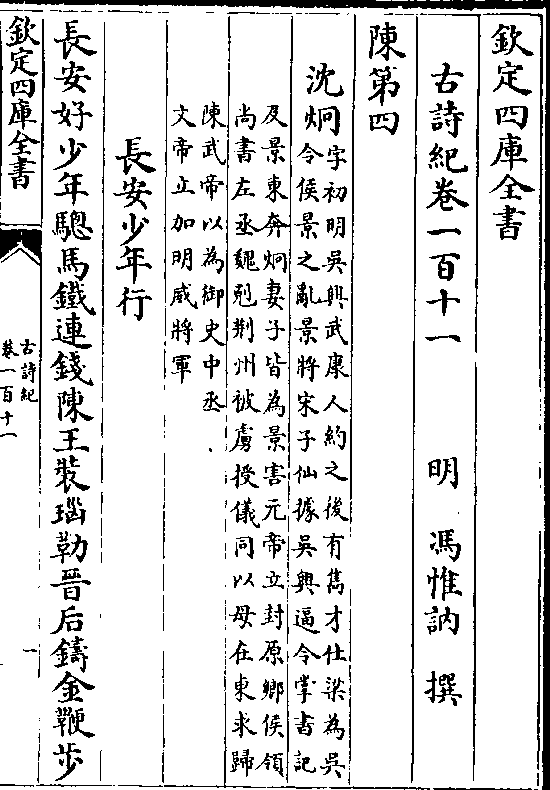 欽定四庫全書
古詩紀卷一百十一 明 馮惟訥 撰
陳第四
沈炯字初明吳興武康人約之後有雋才仕梁為吳
令侯景之亂景將宋子仙據吳興逼令掌書記
及景東奔炯妻子皆為景害元帝立封原鄉侯領
尚書左丞魏剋荆州被虜授儀同以母在東求歸
陳武帝以為御史中丞
文帝立加明威將軍
長安少年行
長安好少年驄馬鐵連錢陳王裝瑙勒晉后鑄金鞭步
欽定四庫全書
古詩紀
卷一百十一
一